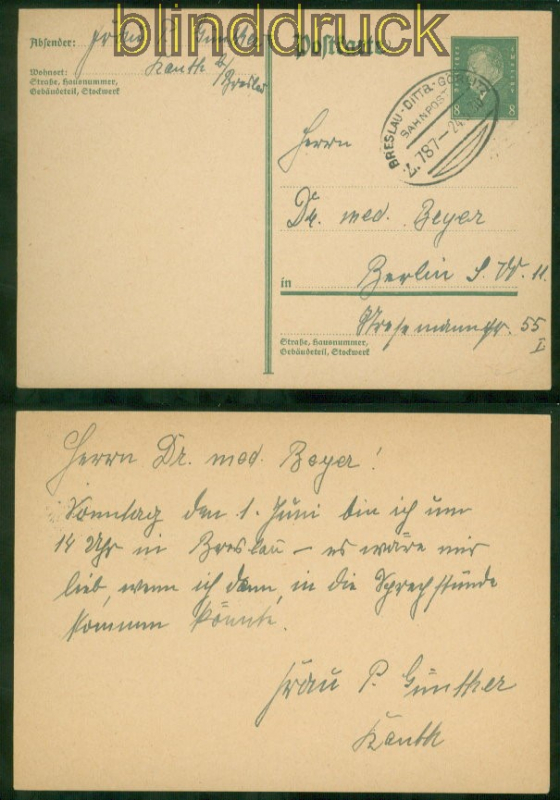 blinddruck
Absender: Frau P. Günther
Kanth b/
Breslau
Wohnort:
Straße, Hausnummer,
Gebäudeteil, Stockwerk
Postkarte
DEUTSCHES REICH
8 8
BRESLAU-DITTB.-GÖRLITZ
BAHNPOST
Z.787-24.
Herrn
Dr. med. Beyer
in Berlin S. W. 11.
Stresemannstr. 55
I
Straße, Hausnummer,
Gebäudeteil, Stockwerk
Herrn Dr. med. Beyer!
Sonntag den 1. Juni bin ich um
14 Uhr in Breslau – es wäre mir
lieb, wenn ich dann, in die Sprechstunde
kommen könnte.
Frau P. Günther
Kanth